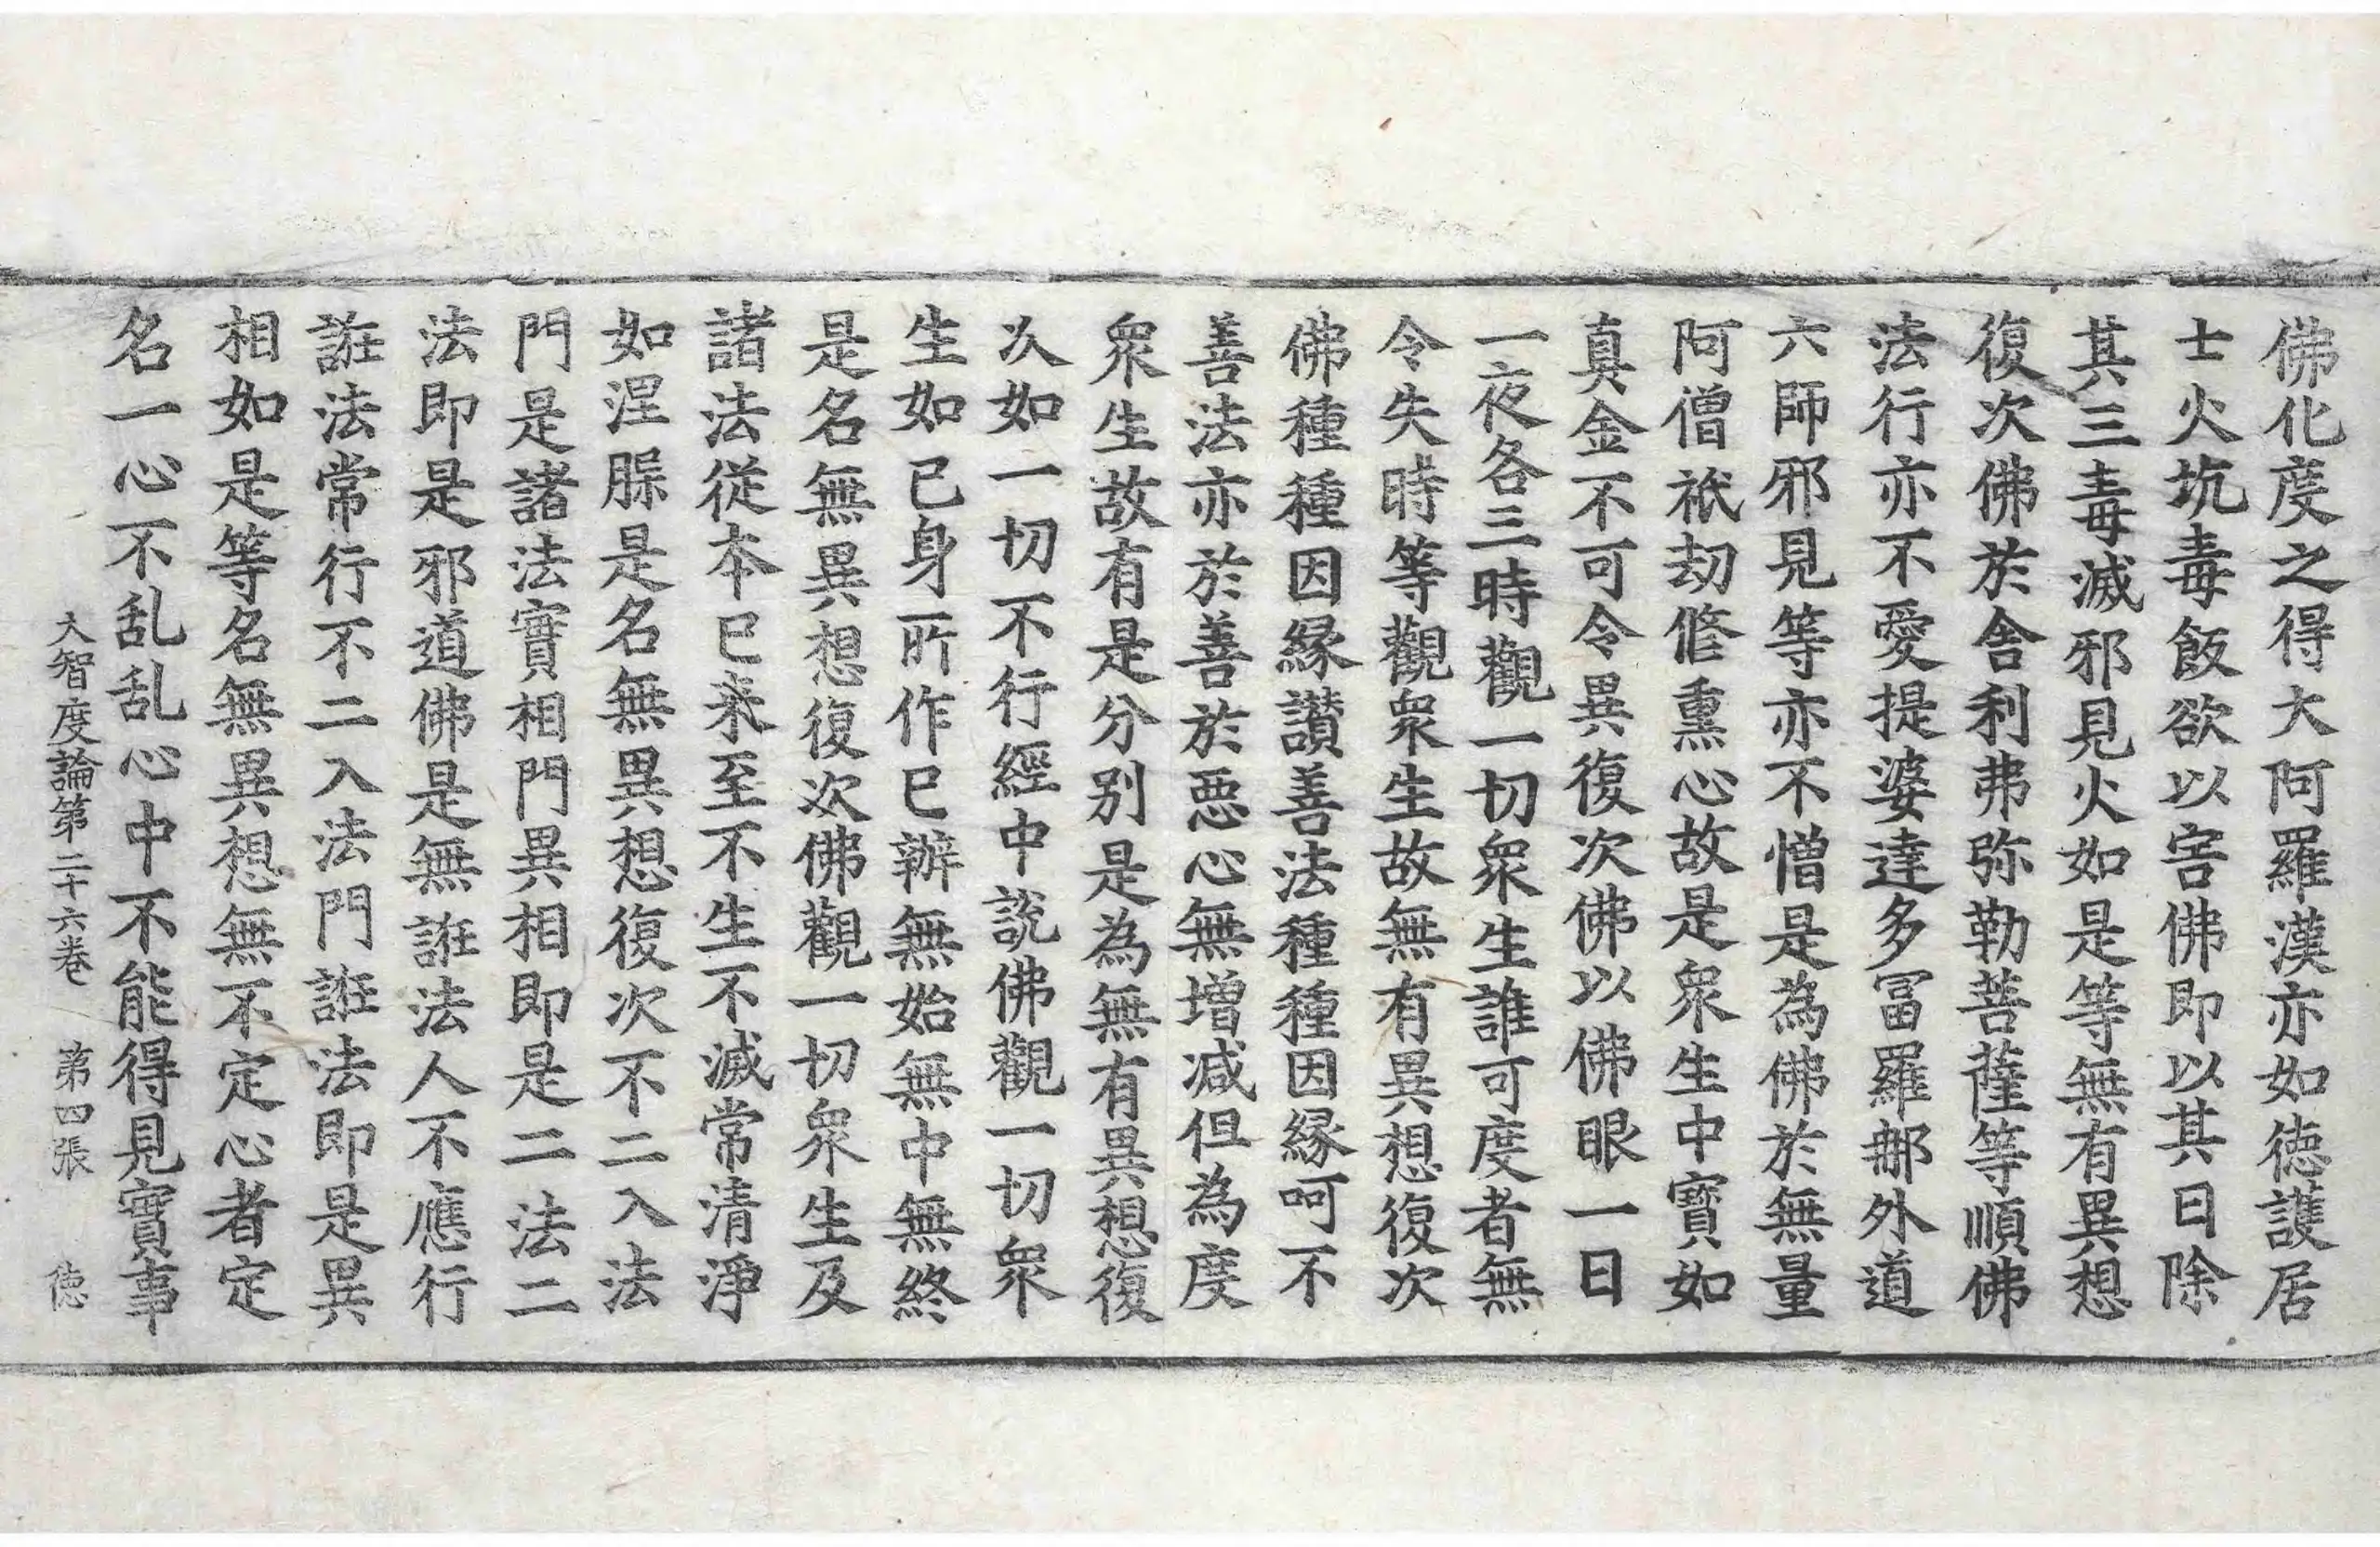 佛化度之得大阿羅漢亦如徳護居
士火坑毒飯欲以害佛即以其日除
其三毒滅邪見火如是等無有異想
復次佛於舍利弗弥勒菩薩等順佛
法行亦不愛提婆達多冨羅那外道
六師邪見等亦不憎是為佛於無量
阿僧祇劫修熏心故是衆生中寶如
真金不可令異復次佛以佛眼一日
一夜各三時觀一切衆生誰可度者無
令失時等觀衆生故無有異想復次
佛種種因縁讃善法種種因縁呵不
善法亦於善於悪心無増减但為度
衆生故有是分别是為無有異想復
次如一切不行經中說佛觀一切衆
生如已身所作已辦無始無中無終
是名無異想復次佛觀一切衆生及
諸法從本已来至不生不滅常清淨
如涅槃是名無異想復次不二入法
門是諸法實相門異相即是二法二
法即是邪道佛是無誑法人不應行
誑法常行不二入法門誑法即是異
相如是等名無異想無不定心者定
名一心不乱乱心中不能得見實事
大智度論第二十六卷 第四張 徳